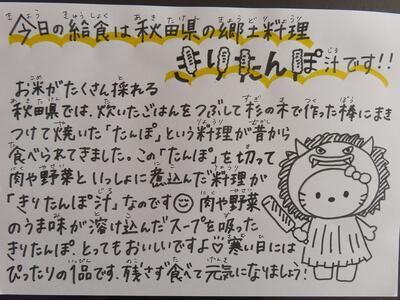 今日の給食は秋田県の郷土料理
きりたんぽ汁です!!
お米がたくさん採れる
秋田県では、炊いたごはんをつぶして杉の木で作った棒にまき
つけて焼いた「たんぽ」という料理が昔から
食べられてきました。この「たんぽ」を切って
肉や野菜といっしょに煮込んだ料理が
「きりたんぽ汁」なのです☺ 肉や野菜
のうま味が溶け込んだスープを吸った
きりたんぽ、とってもおいしいですよ♡寒い日には
ぴったりの1品です。残さず食べて元気になりましょう!